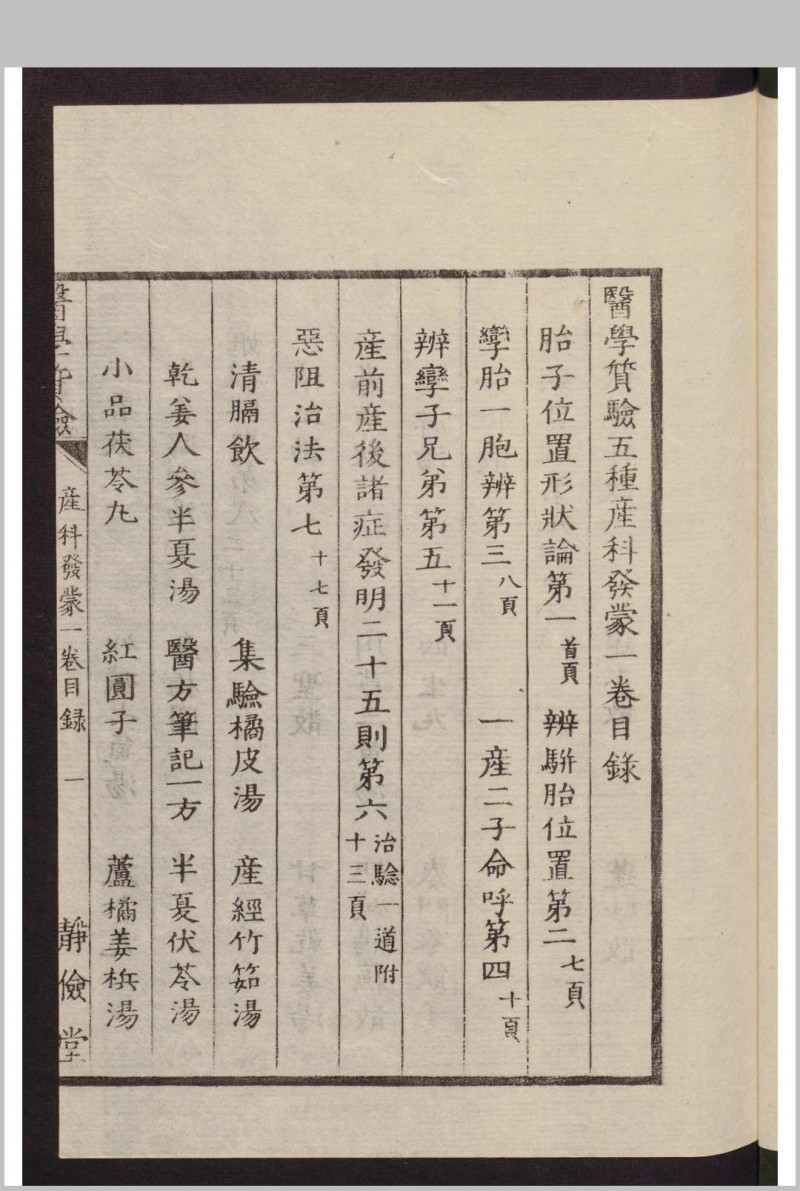 醫學質驗五種産科發蒙一卷目錄
胎子位置形狀論第一首頁 辨駢胎位置第二七頁
孿胎一胞辨第三八頁 一産二子命呼第四十頁
辨孿子兄弟第五十一頁
産前産後諸症發明二十五則第六治驗一道附十三頁
惡阻治法第七十七頁
清膈飲 集驗橘皮湯 産經竹筎湯
乾姜人參半夏湯 醫方筆記一方 半夏伏苓湯
小品茯苓丸 紅圓子 蘆橘姜梹湯
醫學質驗 産科發蒙一卷目録 一 靜儉堂